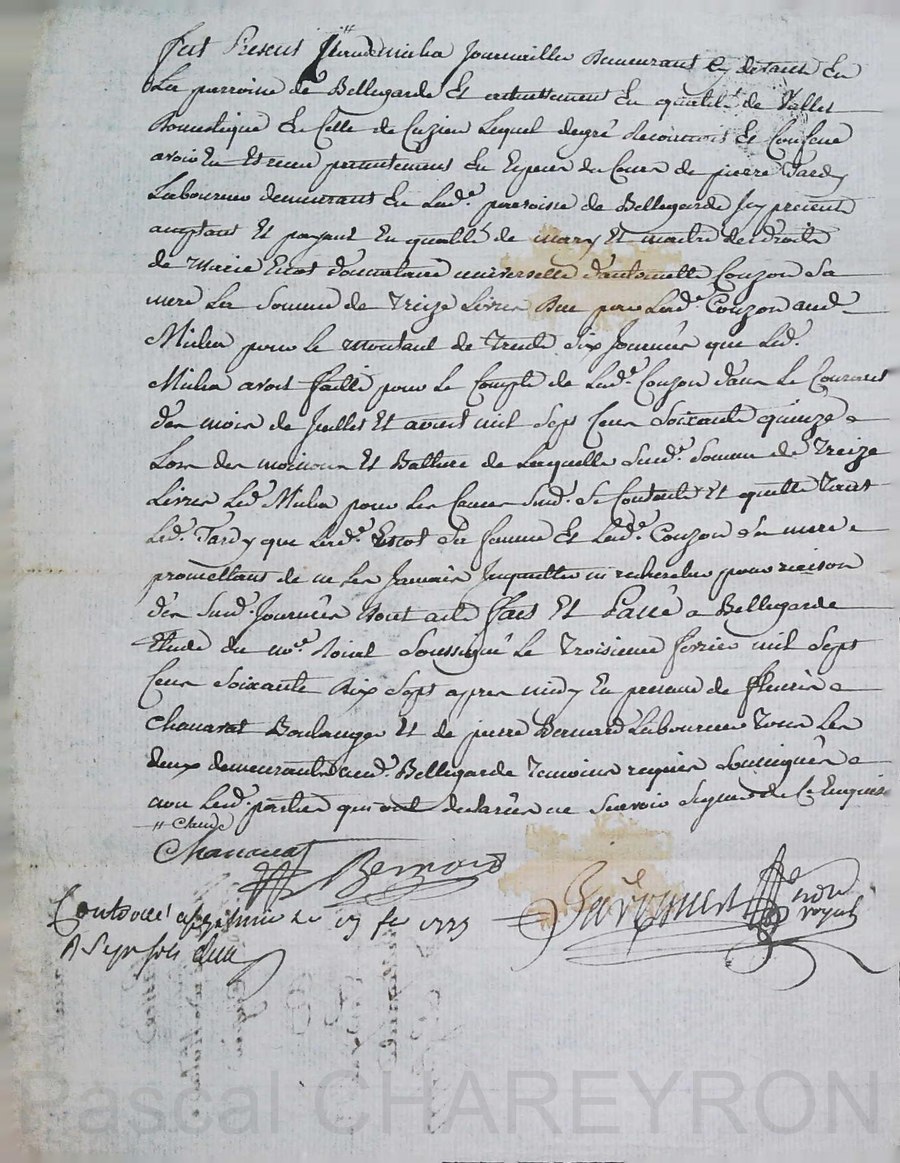 Fut Present // Claude Micha Journaillier Demeurant Cy devant En
La parroisse de Bellegarde Et actuellement En qualité de Vallet
Domestique En Celle de Cuzieu Lequel de gré Reconnois et Confesse
avoir Eu Et Receu presentement En Espece du Cours de pierre Tardy
Laboureur demeurant En Lad.e parroisse de Bellegarde Icy present
acceptant Et payant En qualité de mary Et maitre des droits
de Marie Escot donnataire universelle d'antoinette Couzon Sa
mere La Somme de Treize Livres Due par Lad.e Couzon aud.
Micha pour le montant de Trente Six Journées que Led.
Micha avoit faitte pour Le Compte de Lad.e Couzon dans Le Courant
des mois de Juillet Et aoust mil Sept Cens Soixante quinze
Lors des moissons Et Batture de Laquelle Susd.e Somme de Treize
Livres Led. Micha pour Les Causes Susd. Se Contente Et quitte Tant
Led. Tardy que Lad.e Escot Sa femme Et Lad.e Couzon Sa mere
promettant de ne Les Jamais Inquietter ni rechercher pour raison
des Susd. Journées Dont acte fait Et Passé a Bellegarde
Etude du no.re Roial Soussigné Le Troisieme fevrier mil Sept
Cens Soixante Dix Sept apres midy En presence de fleuris
Chanavat Boulanger Et de pierre Bernard Laboureur Tous Les
deux demeurants aud. Bellegarde Temoins requis Soussignés
non Lesd. parties qui ont declarées ne Scavoir Signer de Ce Enquis
// Claude
Chanavat Bernard
no.re royal
Controllé a le 17 fe 1777
R Sept sols
Pascal CHAREYRON